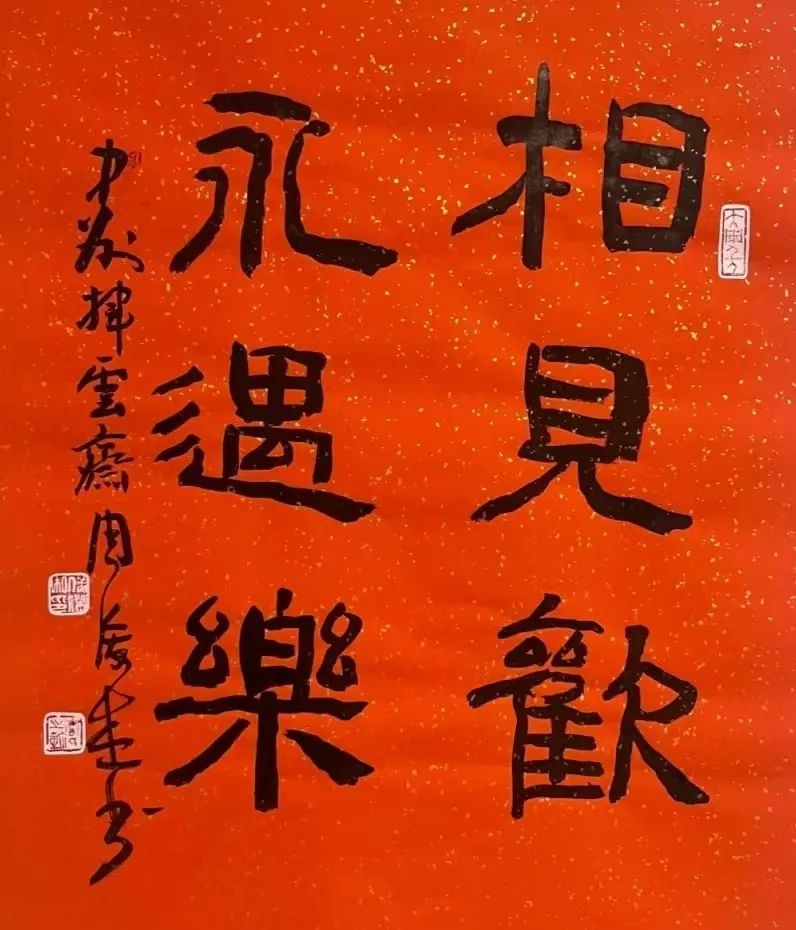 相見歡
永遇樂
中州揮雲齋周俊杰書